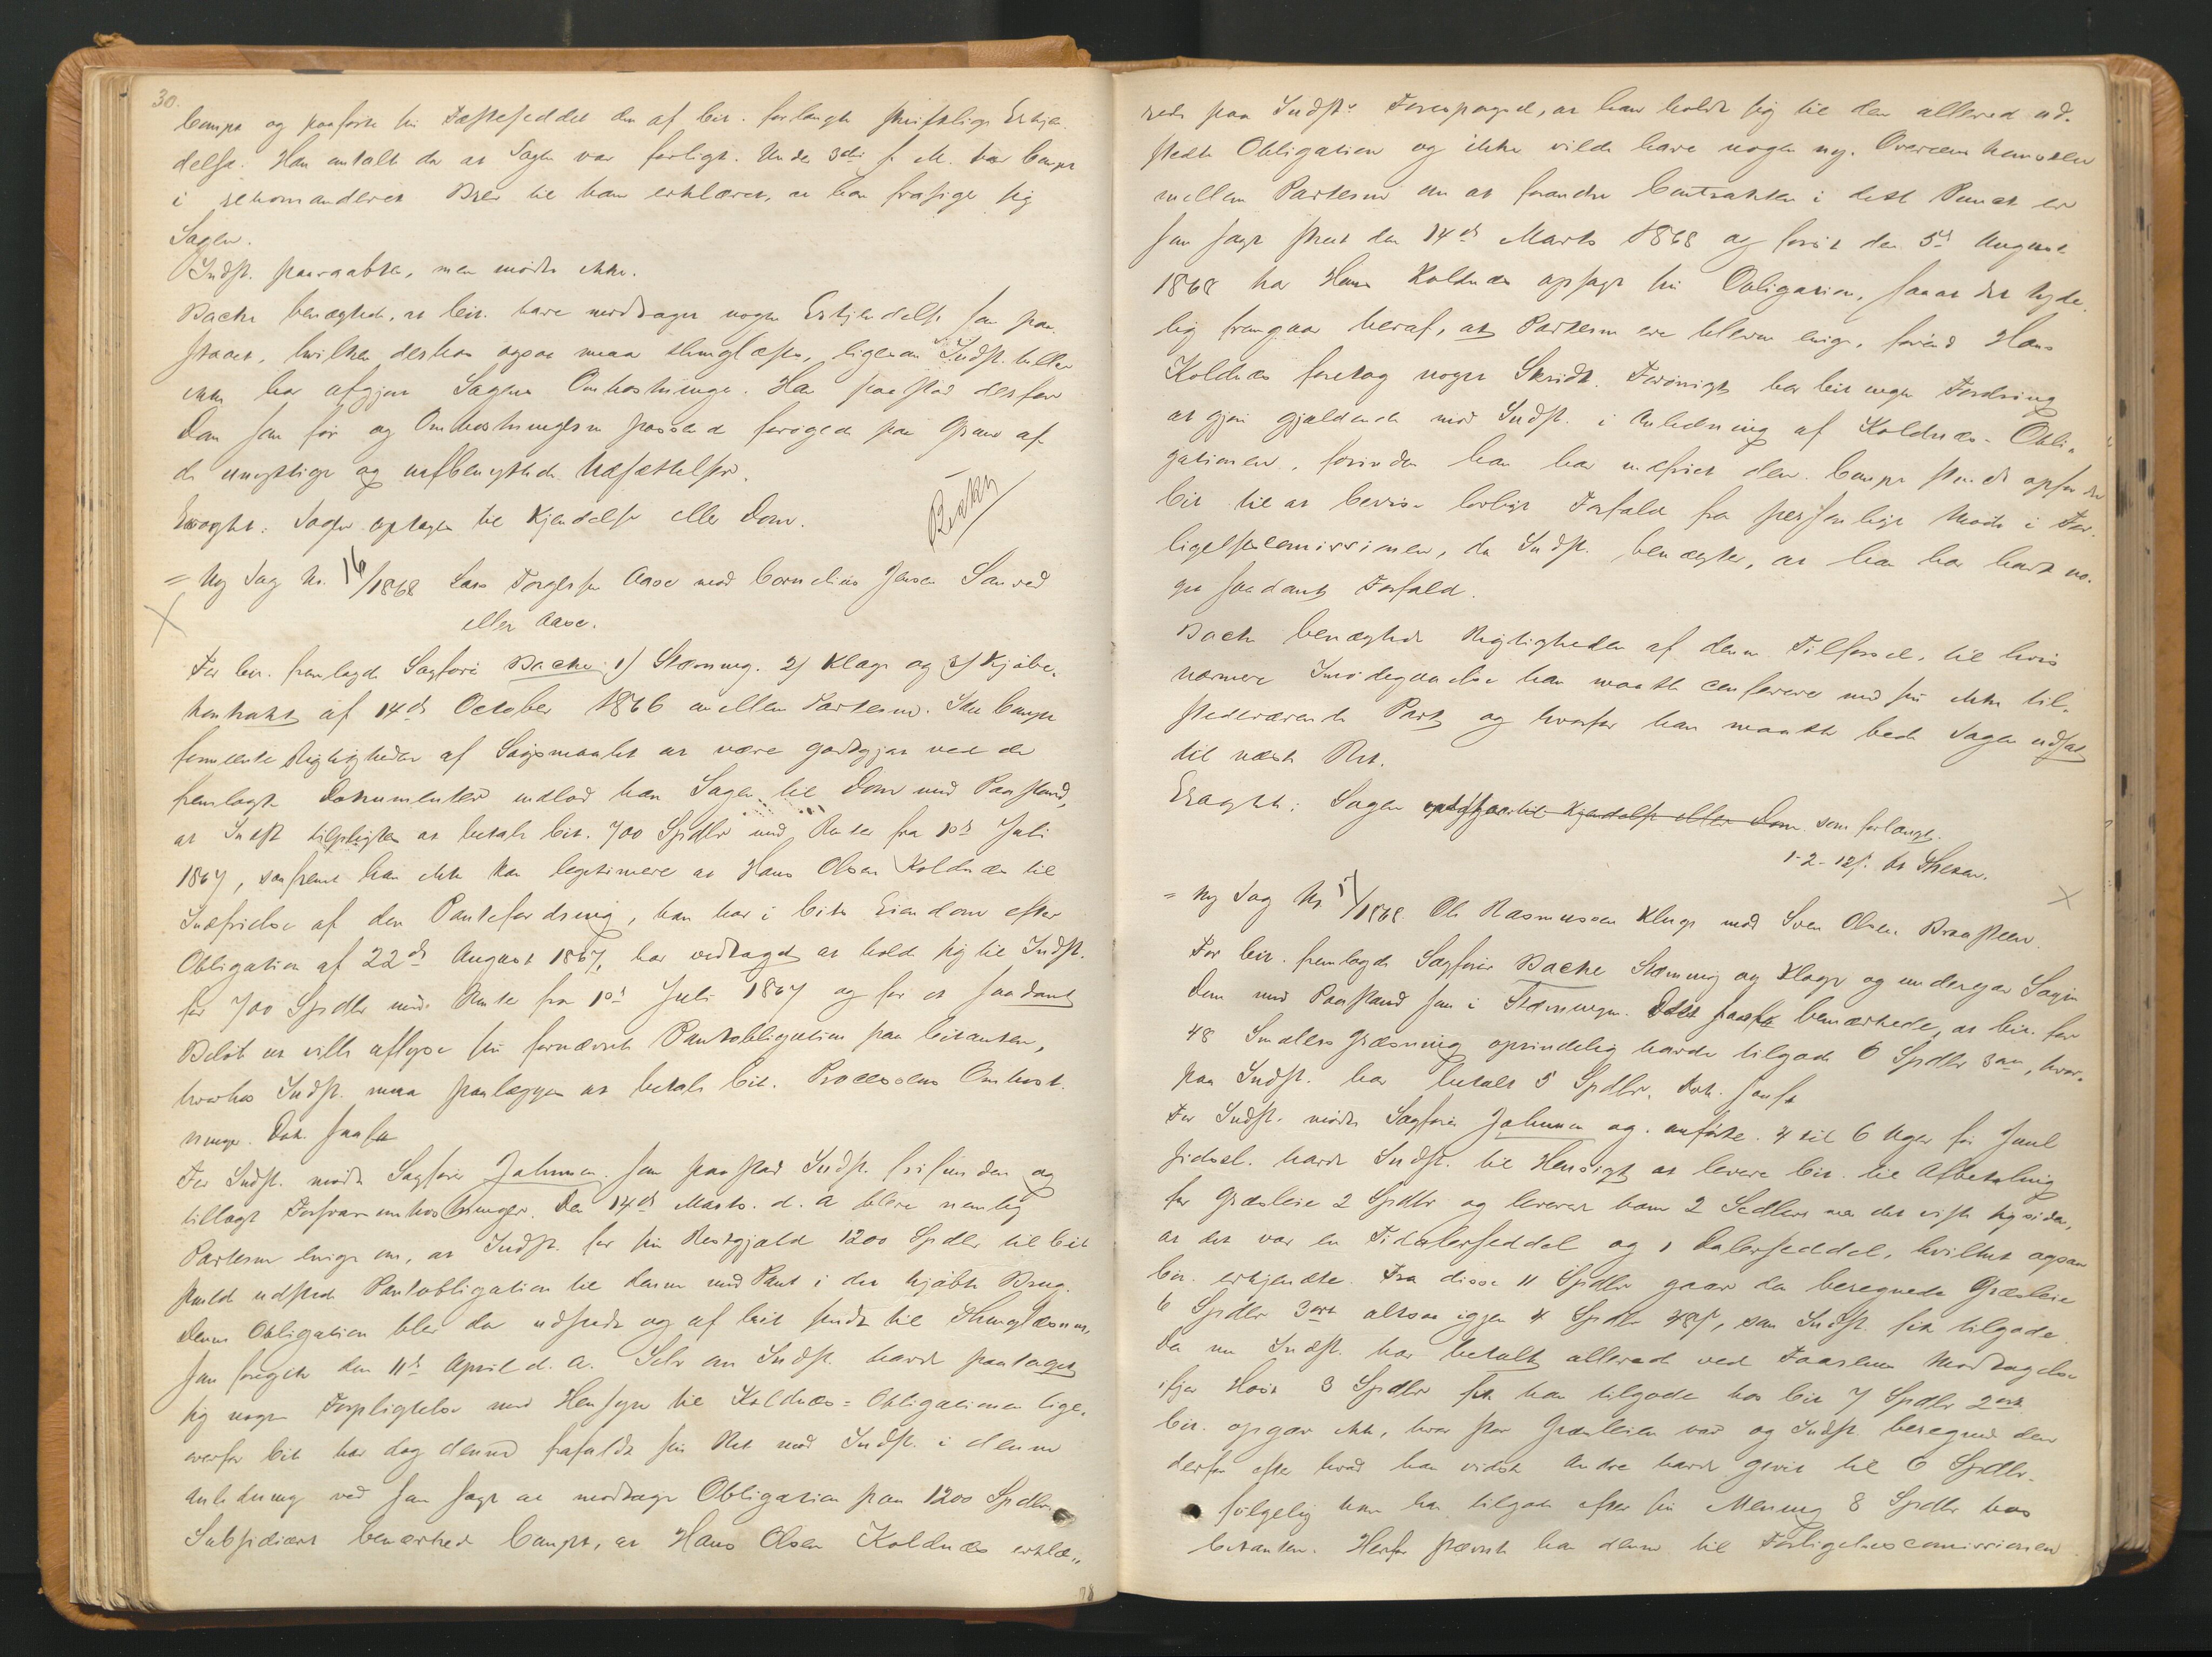 30.
Comp. og paaførte sin Fæsteseddel den af Cit. forlangte skriftlige Erkjen-
delse. Han antalte da at Sagen var forligt. Under 3die f. M. har Comp.
i rekomanderet Brev til ham erklæret, at han frasiger sig
Sagen.
Indst. paaraabtes, men mødte ikke.
Bache benægtede, at Cit. have modtaget nogen Erkjendelse som paa-
staaet, hvilken desuden ogsaa maa thinglæses, ligesom Indst. heller
ikke har afgjort Sagens Omkostninger. Han paastod derfor
Dom som før og Omkostningerne passende forøgede paa Grund af
de unyttige og ubenyttede Udsættelser.
Eragtet: Sagen optages til Kjendelse eller Dom.
= Ny Sag No. 16/1868 Lars Torgersen Aase mod Cornelius Jensen Sanved
eller Aase.
For Cit. fremlagde Sagfører Bache 1) Stævning. 2) Klage og 3) Kjøbe-
kontrakt af 14de October 1866 mellem Parterne. Idet Comp.
formeente Rigtigheden af Søgsmaalet at være godtgjort ved de
fremlagte Dokumenter indlod han Sagen til Dom med Paastand,
at Indst tilpligtes at betale Cit. 700 Spdlr med Renter fra 1ste Juli
1867, saafremt han ikke kan legitimere at Hans Olsen Koldnæs til
Indfrielse af den Pantefordring, han har i Cits Eiendom efter
Obligation af 22de August 1867, har vedtaget at holde sig til Indst.
for 700 Spdlr med Rente fra 1ste Juli 1867 og for et saadant
Beløb at ville aflyse sin fornævnte Pantobligation paa Citanten,
hvorhos Indst. maa paalægges at betale Cit. Processens Omkost-
ninger. Dok. saasom
For Indst. mødte Sagfører Johnsen som paastod Indst. frifunden og
tillagt Forsvarsomkostninger. Den 14de Marts d. A bleve nemlig
Parterne enige om, at Indst. for sin Restgjæld 1200 Spdlr til Cit
skulde udstede Pantobligation til denne med Pant i det kjøbte Brug.
Denne Obligation blev da udstedt og af Cit sendt til Thinglæsning,
som foregik den 11te April d. A. Selv om Indst. havde paataget
sig nogen Forpligtelse med Hensyn til Koldnæs-Obligationen lige-
overfor Cit har dog denne frafaldt sin Ret mod Indst. i denne
Anledning ved som sagt at modtage Obligation paa 1200 Spdlr.
Subsidiært bemærkede Compt, at Hans Olsen Koldnæs erklæ-
28
rede paa Indst's Forespørgsel, at han holdt sig til den allerede ud-
stedte Obligation og ikke vilde have nogen ny. Overeenskomsten
mellem Parterne om at forandre Contrakten i dette Punct er
som sagt skeet den 14de Marts 1868 og først den 5te August
1868 har Hans Koldnæs opsagt sin Obligation, saa at det tyde-
lig fremgaar heraf, at Parterne ere blevne enige, førend Hans
Koldnæs foretog noget Skridt. Forøvrigt har Cit ingen Fordring
at gjøre gjældende mod Indst. i Anledning af Koldnæs-Obli-
gationen, forinden han har indfriet den. Comp. troede opfordre
Cit til at bevise lovligt Forfald fra personligt Møde i For-
ligelsescomissionen, da Indst. benægter, at han har havt no-
get saadant Forfald.
Bache benægtede Rigtigheden af denne Tilførsel, til hvis
nærmere Imødegaaelse han maatte conferere med sin ikke til-
stedeværende Part og hvorfor han maatte bede Sagen udsat
til næste Ret.
Eragtet: Sagen optages til Kjendelse eller Dom som forlangt.
1-2-12s. At Skeen.
= Ny Sag No. 17/1868. Ole Rasmussen Kluge mod Sven Olsen Braasteen.
For Cit. fremlagde Sagfører Bache Stævning og Klage og undergav Sagen
Dom med Paastand som i Stævningen. Dok. saasom bemærkede, at Cit. for
48 Smalers Græsning oprindelig havde tilgode 6 Spdlr 3 ort, hvor-
paa Indst. har betalt 5 Spdlr. Dok. saasom
For Indst. mødte Sagfører Johnsen og anførte. 4 til 6 Uger før Juul
sidstl. havde Indst. til Hensigt at levere Cit. til Afbetaling
for Græsleie 2 Spdlr og leverede ham 2 Sedler men det viste sig siden,
at det var en Tidalerseddel og 1 Dalerseddel, hvilket ogsaa
Cit. erkjendte. Fra disse 11 Spdlr gaar da beregnede Græsleie
6 Spdlr 3 ort altsaa igjen 4 Spdlr 48s, som Indst. fik tilgode.
Da nu Indst. har betalt allerede ved Faarenes Modtagelse
ifjor Høst 3 Spdlr fik han tilgode hos Cit 7 Spdlr 2 ort.
Cit. opgav ikke, hvor stor Græsleien var og Indst. beregnede den
derfor efter hvad han vidste Andre havde givet til 6 Spdlr.
følgelig har han tilgode efter sin Mening 8 Spdlr hos
Citanten. Herfor stævnte han denne til Forligelsescomissionen